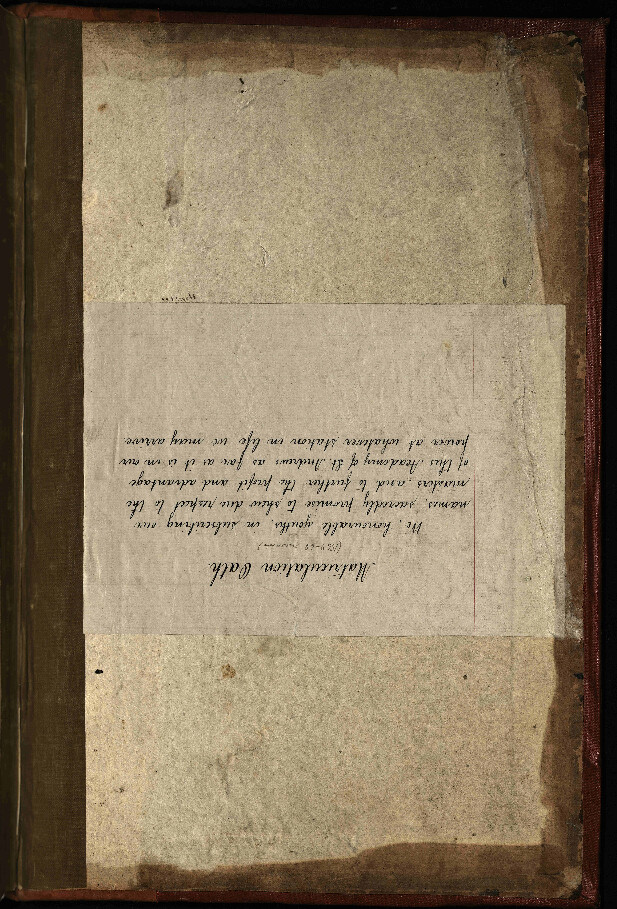 Matriculation Oath
We, honourable youths, in subscribing our
names sacredly promise to shew due respect to the
masters, and to further the profit and advantage
of this Academy of St. Andrews as far as it is in our
power at whatever station in life we may arrive